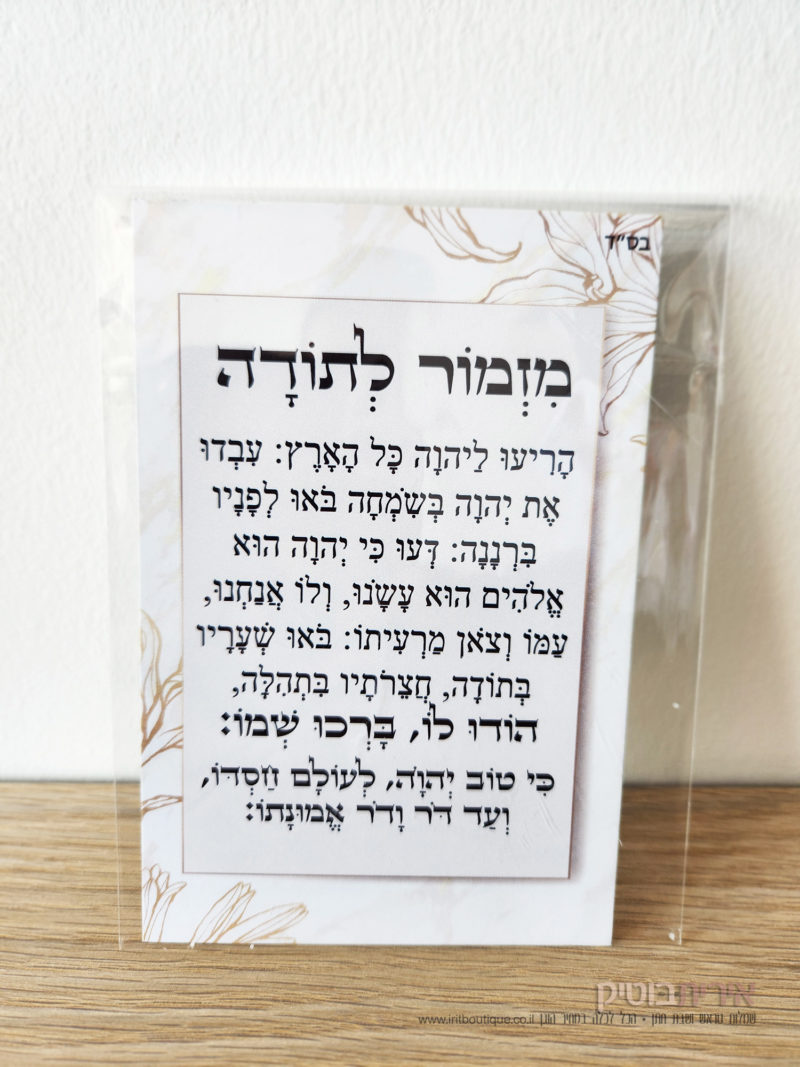 בס"ד
מִזְמוֹר לְתוֹדָה
הָרִיעוּ לַיהוָה כָּל הָאָרֶץ: עִבְדוּ
אֶת יְהוָה בְּשִׂמְחָה בֹּאוּ לְפָנָיו
בִּרְנָנָה: דְּעוּ כִּי יְהוָה הוּא
אֱלֹהִים הוּא עָשָׂנוּ, וְלוֹ אֲנַחְנוּ,
עַמּוֹ וְצֹאן מַרְעִיתוֹ: בֹּאוּ שְׁעָרָיו
בְּתוֹדָה, חֲצֵרֹתָיו בִּתְהִלָּה,
הוֹדוּ לוֹ, בָּרְכוּ שְׁמוֹ:
כִּי טוֹב יְהוָה, לְעוֹלָם חַסְדּוֹ,
וְעַד דֹּר וָדֹר אֱמוּנָתוֹ:
אירית בוטיק
שמלות טראש ושבת חתן • הכל לכלה במחיר הוגן www.iritboutique.co.il